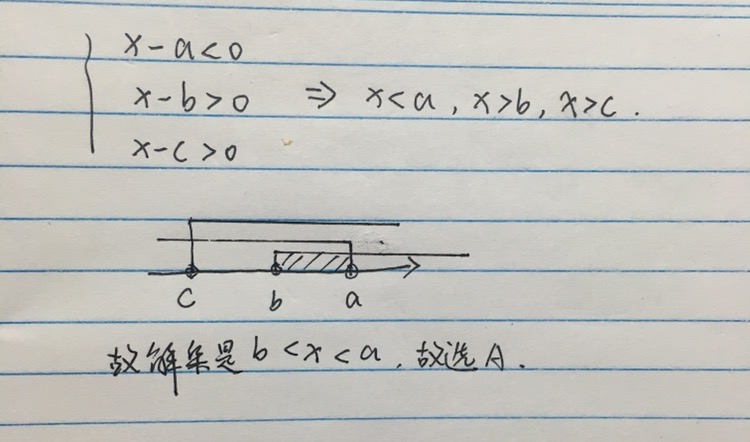 x-a<0
x-b>0 ⇒ x<a, x>b, x>c.
x-c>0
c b a
故解集是 b<x<a, 故选A.